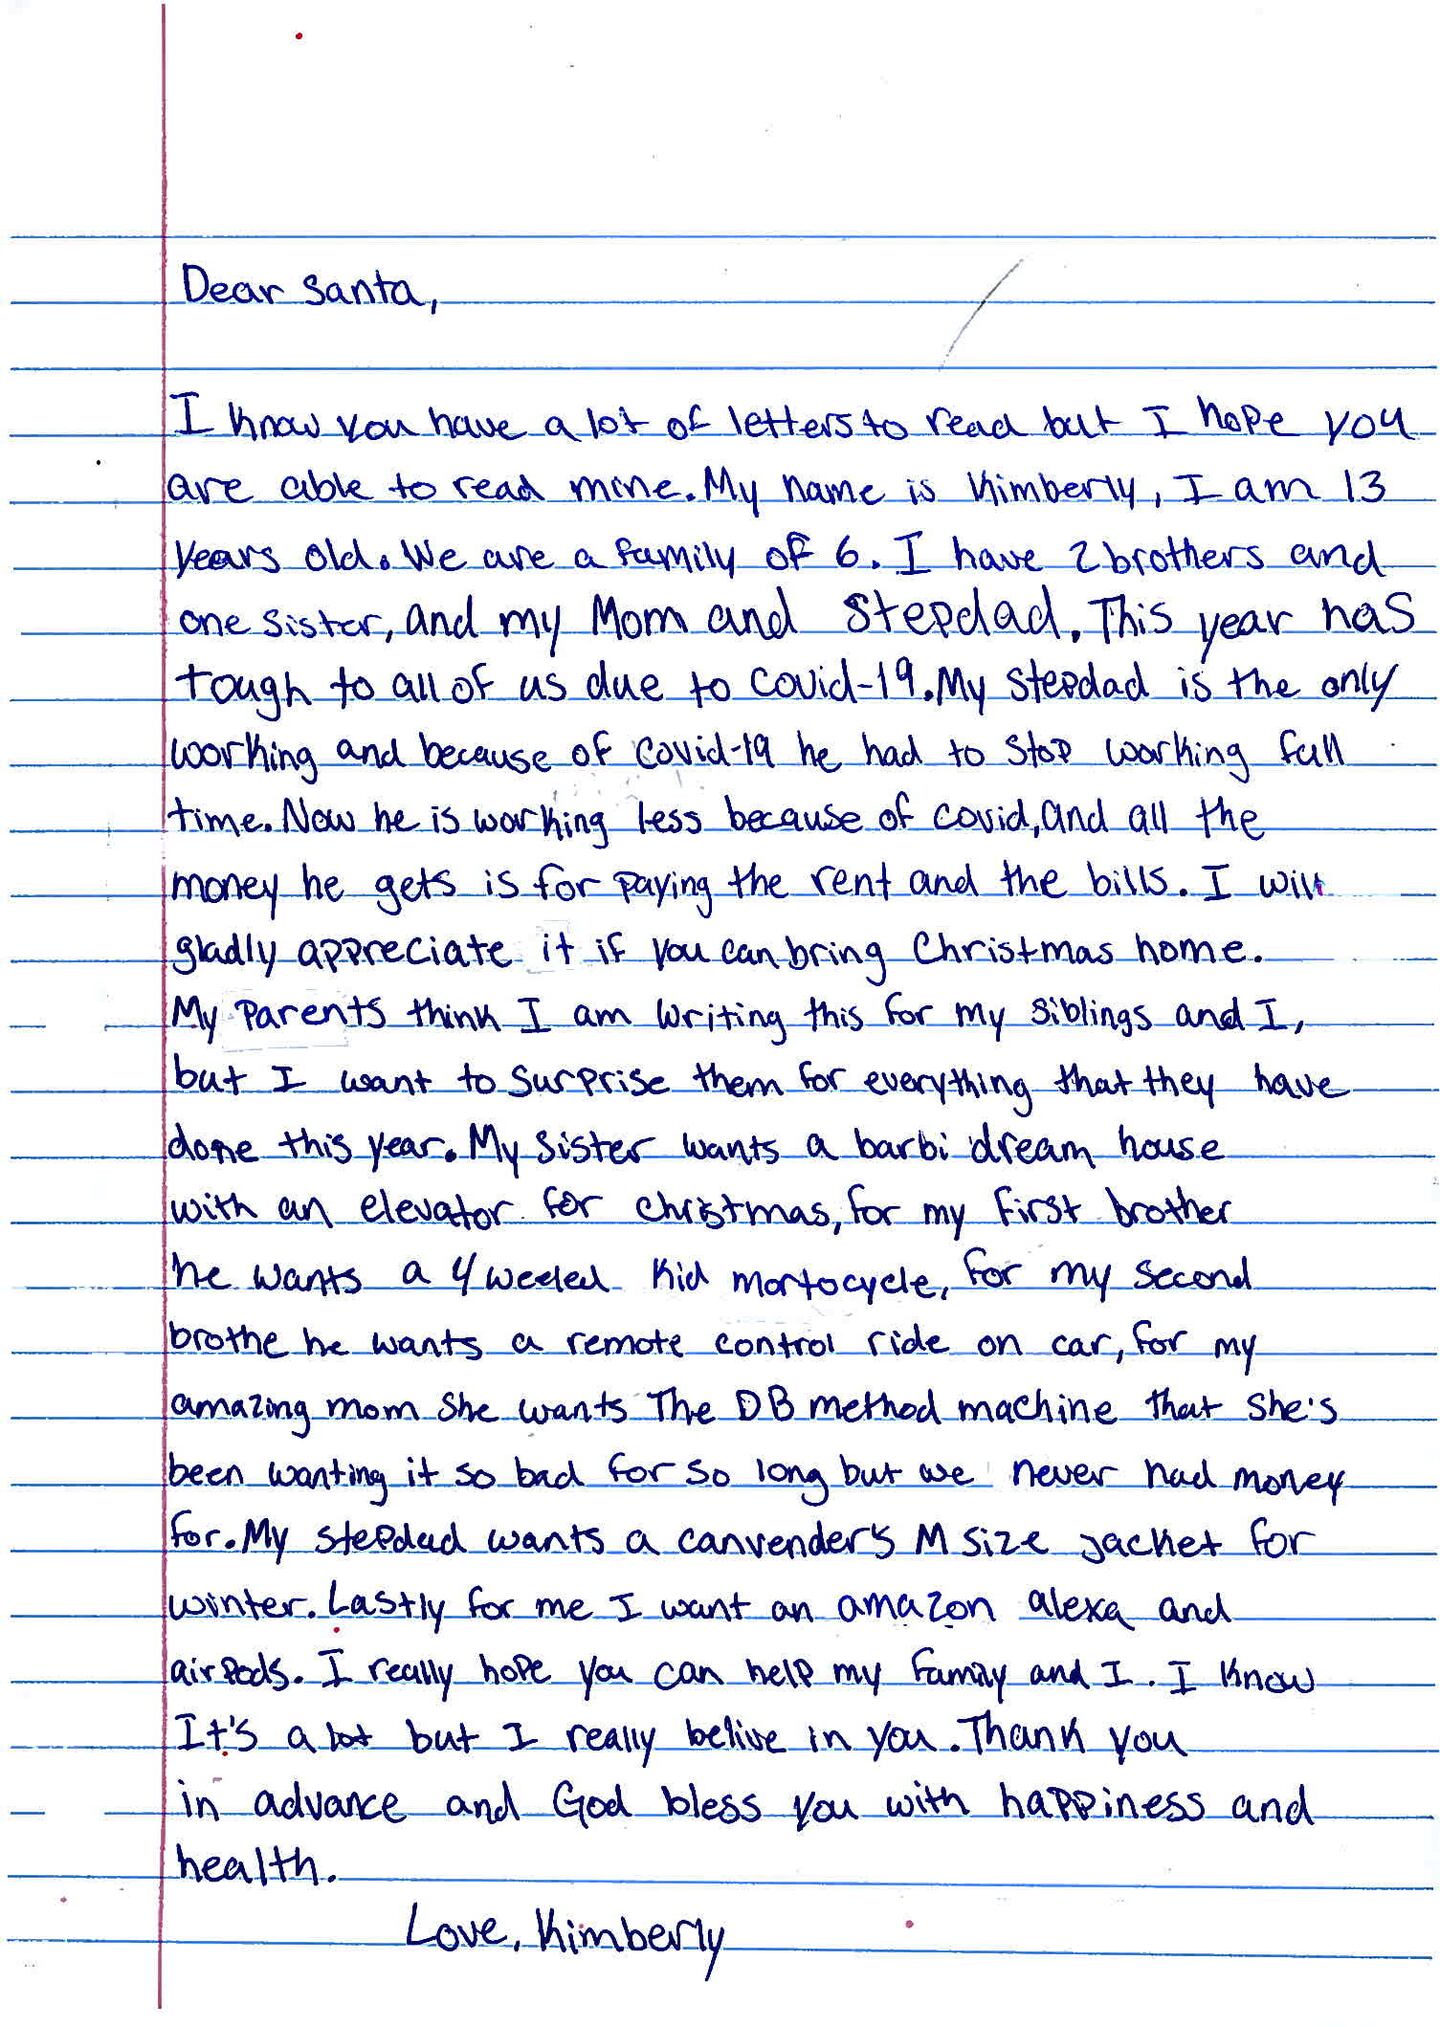 Dear Santa,
I know you have a lot of letters to read but I hope you
are able to read mine. My name is Kimberly, I am 13
years old. We are a family of 6. I have 2 brothers and
one sister, and my Mom and Stepdad. This year has
tough to all of us due to Covid-19. My stepdad is the only
working and because of Covid-19 he had to stop working full
time. Now he is working less because of covid, and all the
money he gets is for paying the rent and the bills. I will
gladly appreciate it if you can bring Christmas home.
My parents think I am writing this for my siblings and I,
but I want to surprise them for everything that they have
done this year. My sister wants a barbi dream house
with an elevator for christmas, for my first brother
he wants a 4 weeled kid mortocycle, for my second
brothe he wants a remote control ride on car, for my
amazing mom she wants The DB method machine that she's
been wanting it so bad for so long but we never had money
for. My stepdad wants a canvender's M size jacket for
winter. Lastly for me I want an amazon alexa and
airpods. I really hope you can help my family and I. I know
It's a lot but I really belive in you. Thank you
in advance and God bless you with happiness and
health.
Love, Kimberly